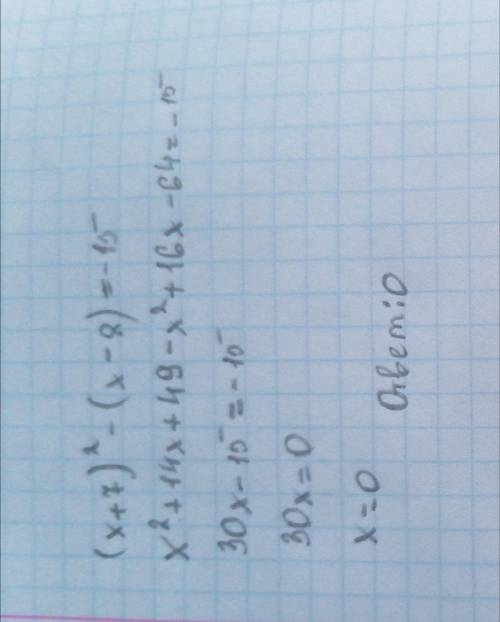 (x+7)² - (x-8) = -15
x² + 14x + 49 - x² + 16x - 64 = -15
30x - 15 = -15
30x = 0
x = 0 Ответ: 0